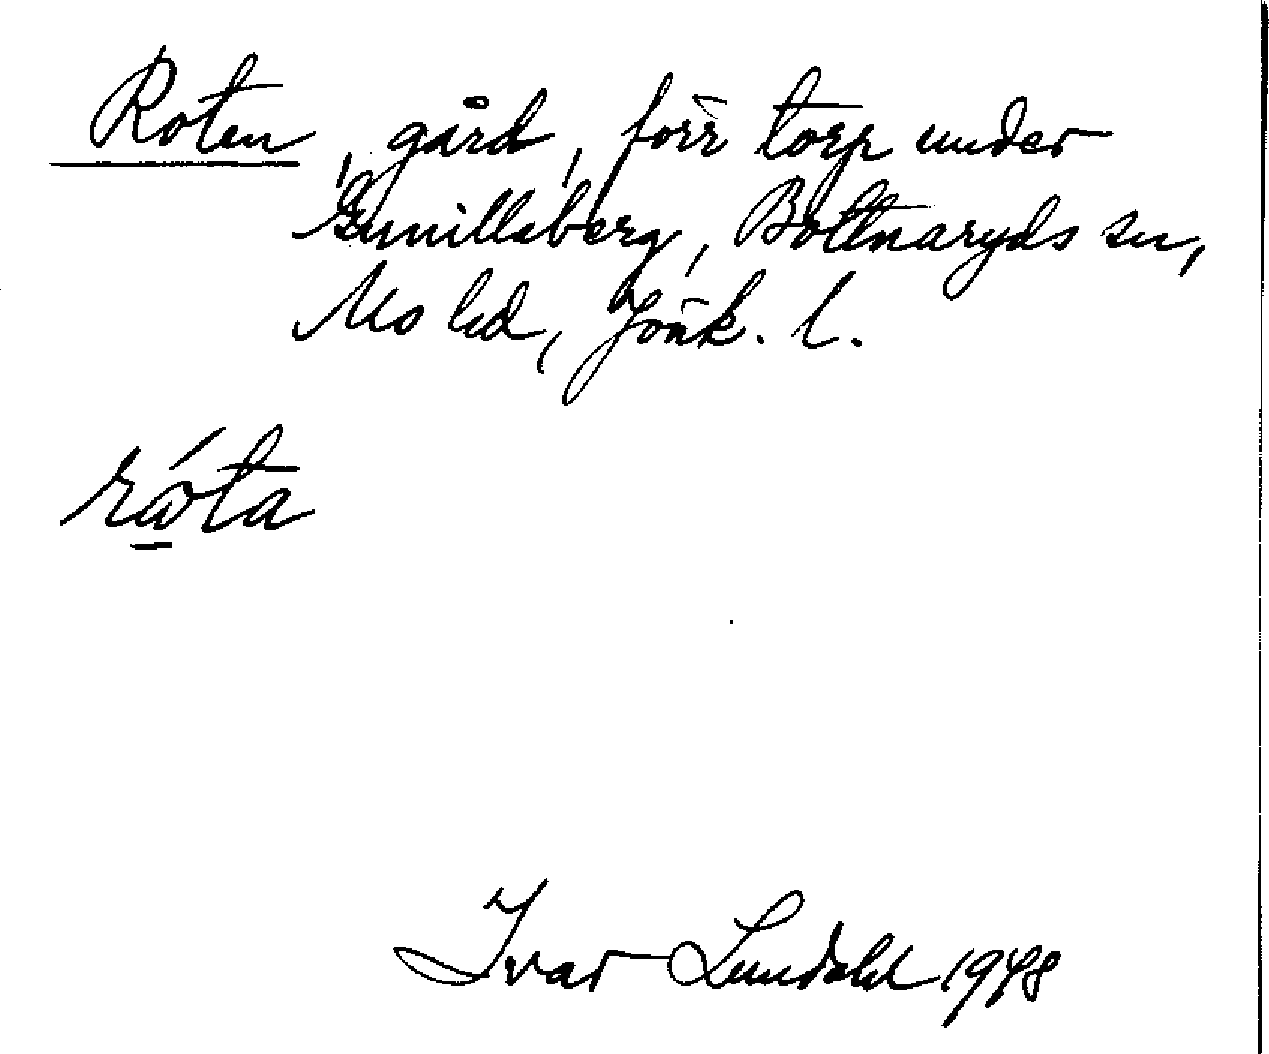 Roten, gård, förr torp under
Gunillaberg, Bottnaryds sn,
Mo hd, Jönk. l.
rǻta
Ivar Lundahl 1948